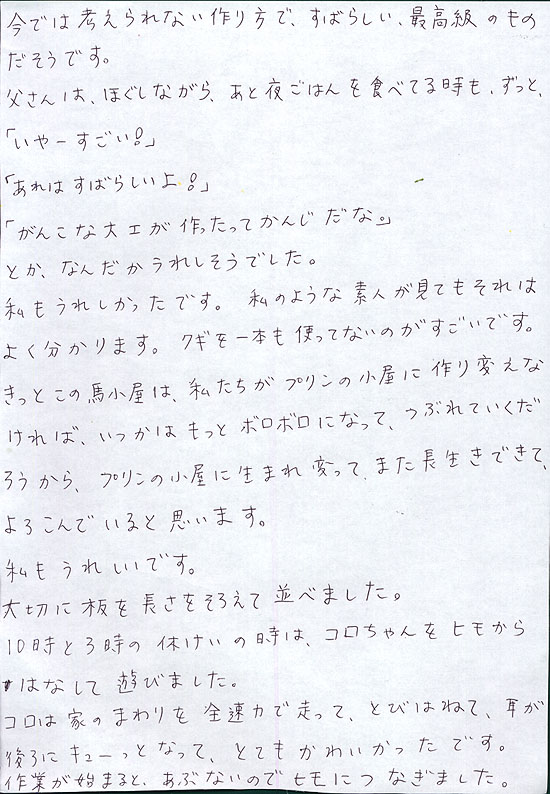 今では考えられない作り方で、すばらしい、最高級のもの
だそうです。
父さんは、ほぐしながら、あと夜ごはんを食べてる時も、ずっと、
「いやーすごい!」
「あれはすばらしいよ!」
「がんこな大工が作ったってかんじだな。」
とか、なんだかうれしそうでした。
私もうれしかったです。 私のような素人が見てもそれは
よく分かります。クギを一本も使ってないのがすごいです。
きっとこの馬小屋は、私たちがプリンの小屋に作り変えな
ければ、いつかはもっとボロボロになって、つぶれていくだ
ろうから、プリンの小屋に生まれ変って、また長生きできて、
よろこんでいると思います。
私もうれしいです。
大切に板を長さをそろえて並べました。
10時と3時の休けいの時は、コロちゃんをヒモから
はなして遊びました。
コロは家のまわりを全速力で走って、とびはねて、耳が
後ろにキューっとなって、とてもかわいかったです。
作業が始まると、あぶないのでヒモにつなぎました。